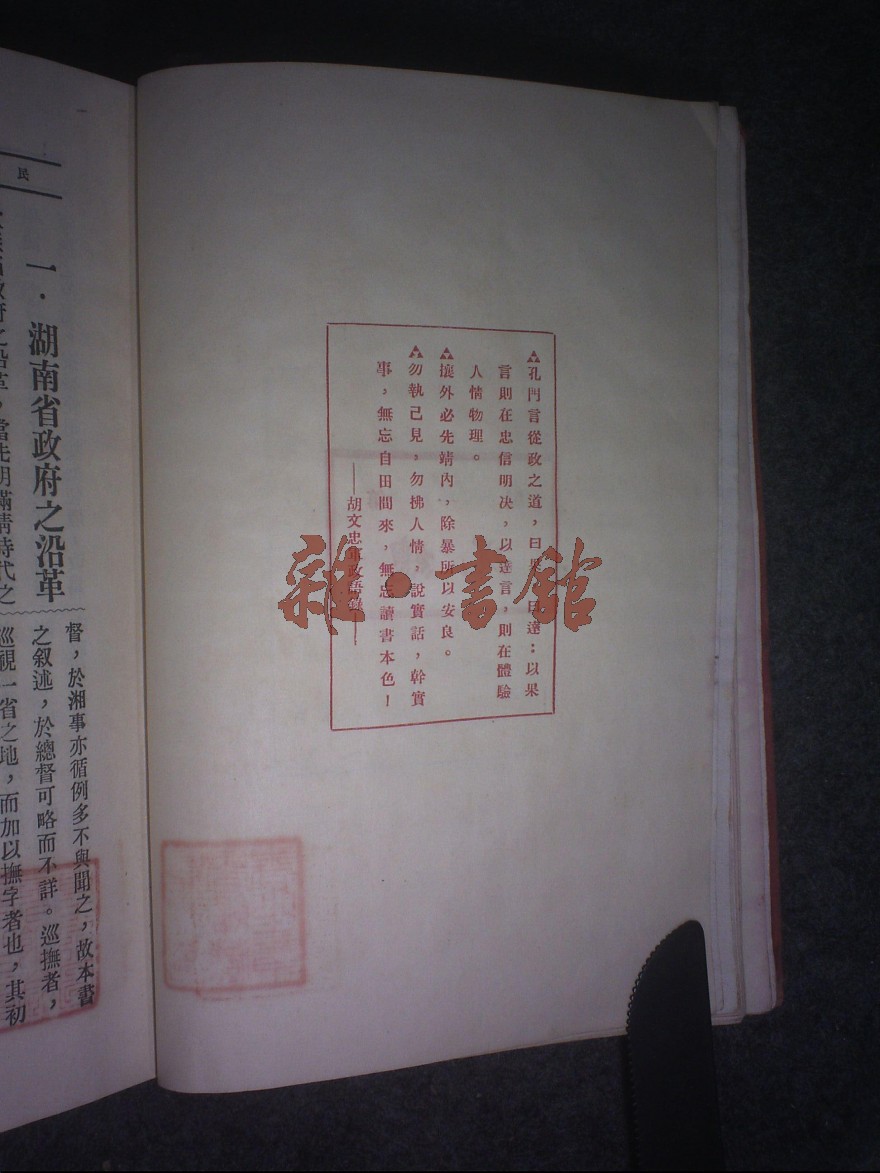 ▲孔門言從政之道，曰果曰達：以果
言則在忠信明决，以達言，則在體驗
人情物理。
▲攘外必先靖內，除暴所以安良。
▲勿執己見，勿拂人情，說實話，幹實
事，無忘自田間來，無忘讀書本色！
——胡文忠軍政語錄——
雜·書館
民
一·湖南省政府之沿革
督，於湘事亦循例多不與聞之，故本書
之叙述，於總督可略而不詳。巡撫者，
巡視一省之地，而加以撫字者也，其初
政府之沿革，當先明滿清時代之